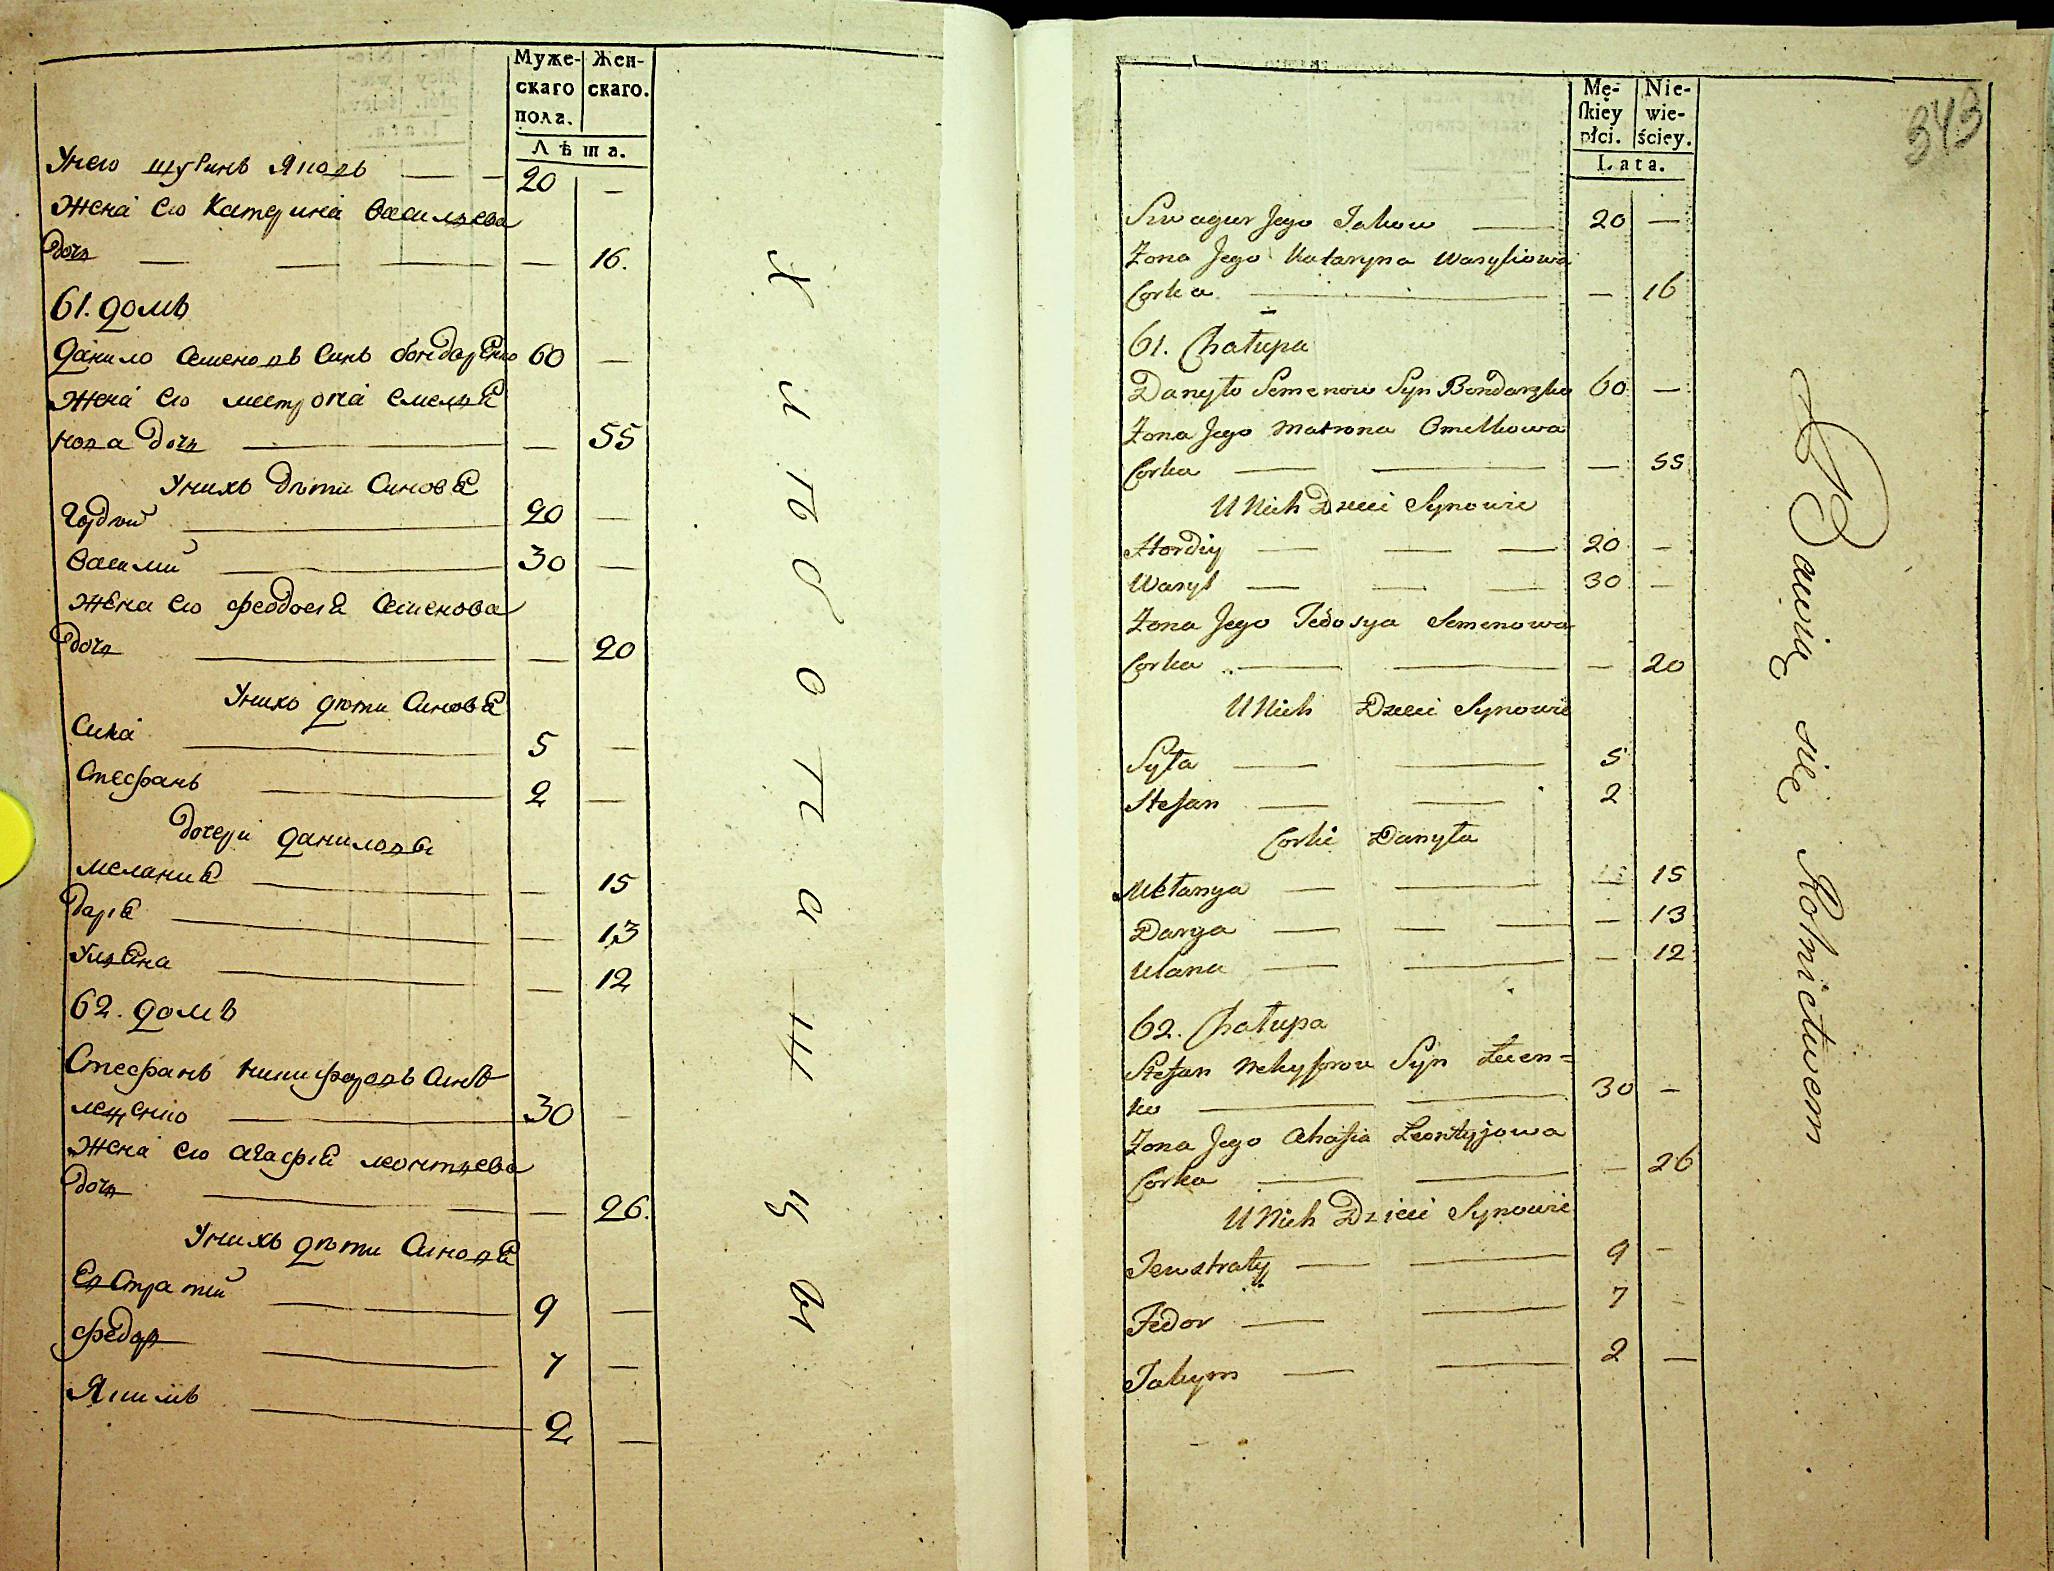 Муже-
скаго
пола.
Жен-
скаго.
Лѣта.
Унего шуринъ Яковъ 20 —
Жена его Катерина Васильева
дочь — 16.
61. домъ
Данило Семеновъ Синъ Бондаренко 60 —
Жена его Матрона Емелья
нова дочь — 55
Унихъ дѣти Синовья
Гордѣй 20 —
Василий 30 —
Жена его Феодосія Семенова
дочь — 20
Унихъ дѣти Синовья
Сила 5 —
Стефанъ 2 —
дочери Даниловы
Мелания — 15
Дарія — 13
Ульяна — 12
62. домъ
Стефанъ Никифоровъ Синъ
30 —
Жена его Агафія Леонтьева
дочь — 26.
Унихъ дѣти Синовья
Евстратий 9 —
Федоръ 7 —
Якимъ 2 —
Хлѣбопашцы
343
Mę-
ſkiey
płci.
Nie-
wie-
ściey.
Lata.
Szwagier Jego Jakow 20 —
Żona Jego Kataryna Wasyliowa
Corka — 16
61. Chałupa
Danyło Semenow Syn Bondarzko 60 —
Żona Jego Matrona Omelkowa
Corka — 55
U Nich Dzieci Synowie
Hordiy 20 —
Wasyl 30 —
Żona Jego Fedosya Semenowa
Corka — 20
U Nich Dzieci Synowie
Syła 5
Stefan 2
Corki Danyła
Mełanya 15
Darya — 13
Ulana — 12
62. Chałupa
Stefan Nekyforow Syn
ko 30 —
Żona Jego Ahafia Leontyjowa
Corka — 26
U Nich Dzieci Synowie
Jewstraty 9 —
Fedor 7 —
Jakym 2 —
Bawią się Rolnictwem